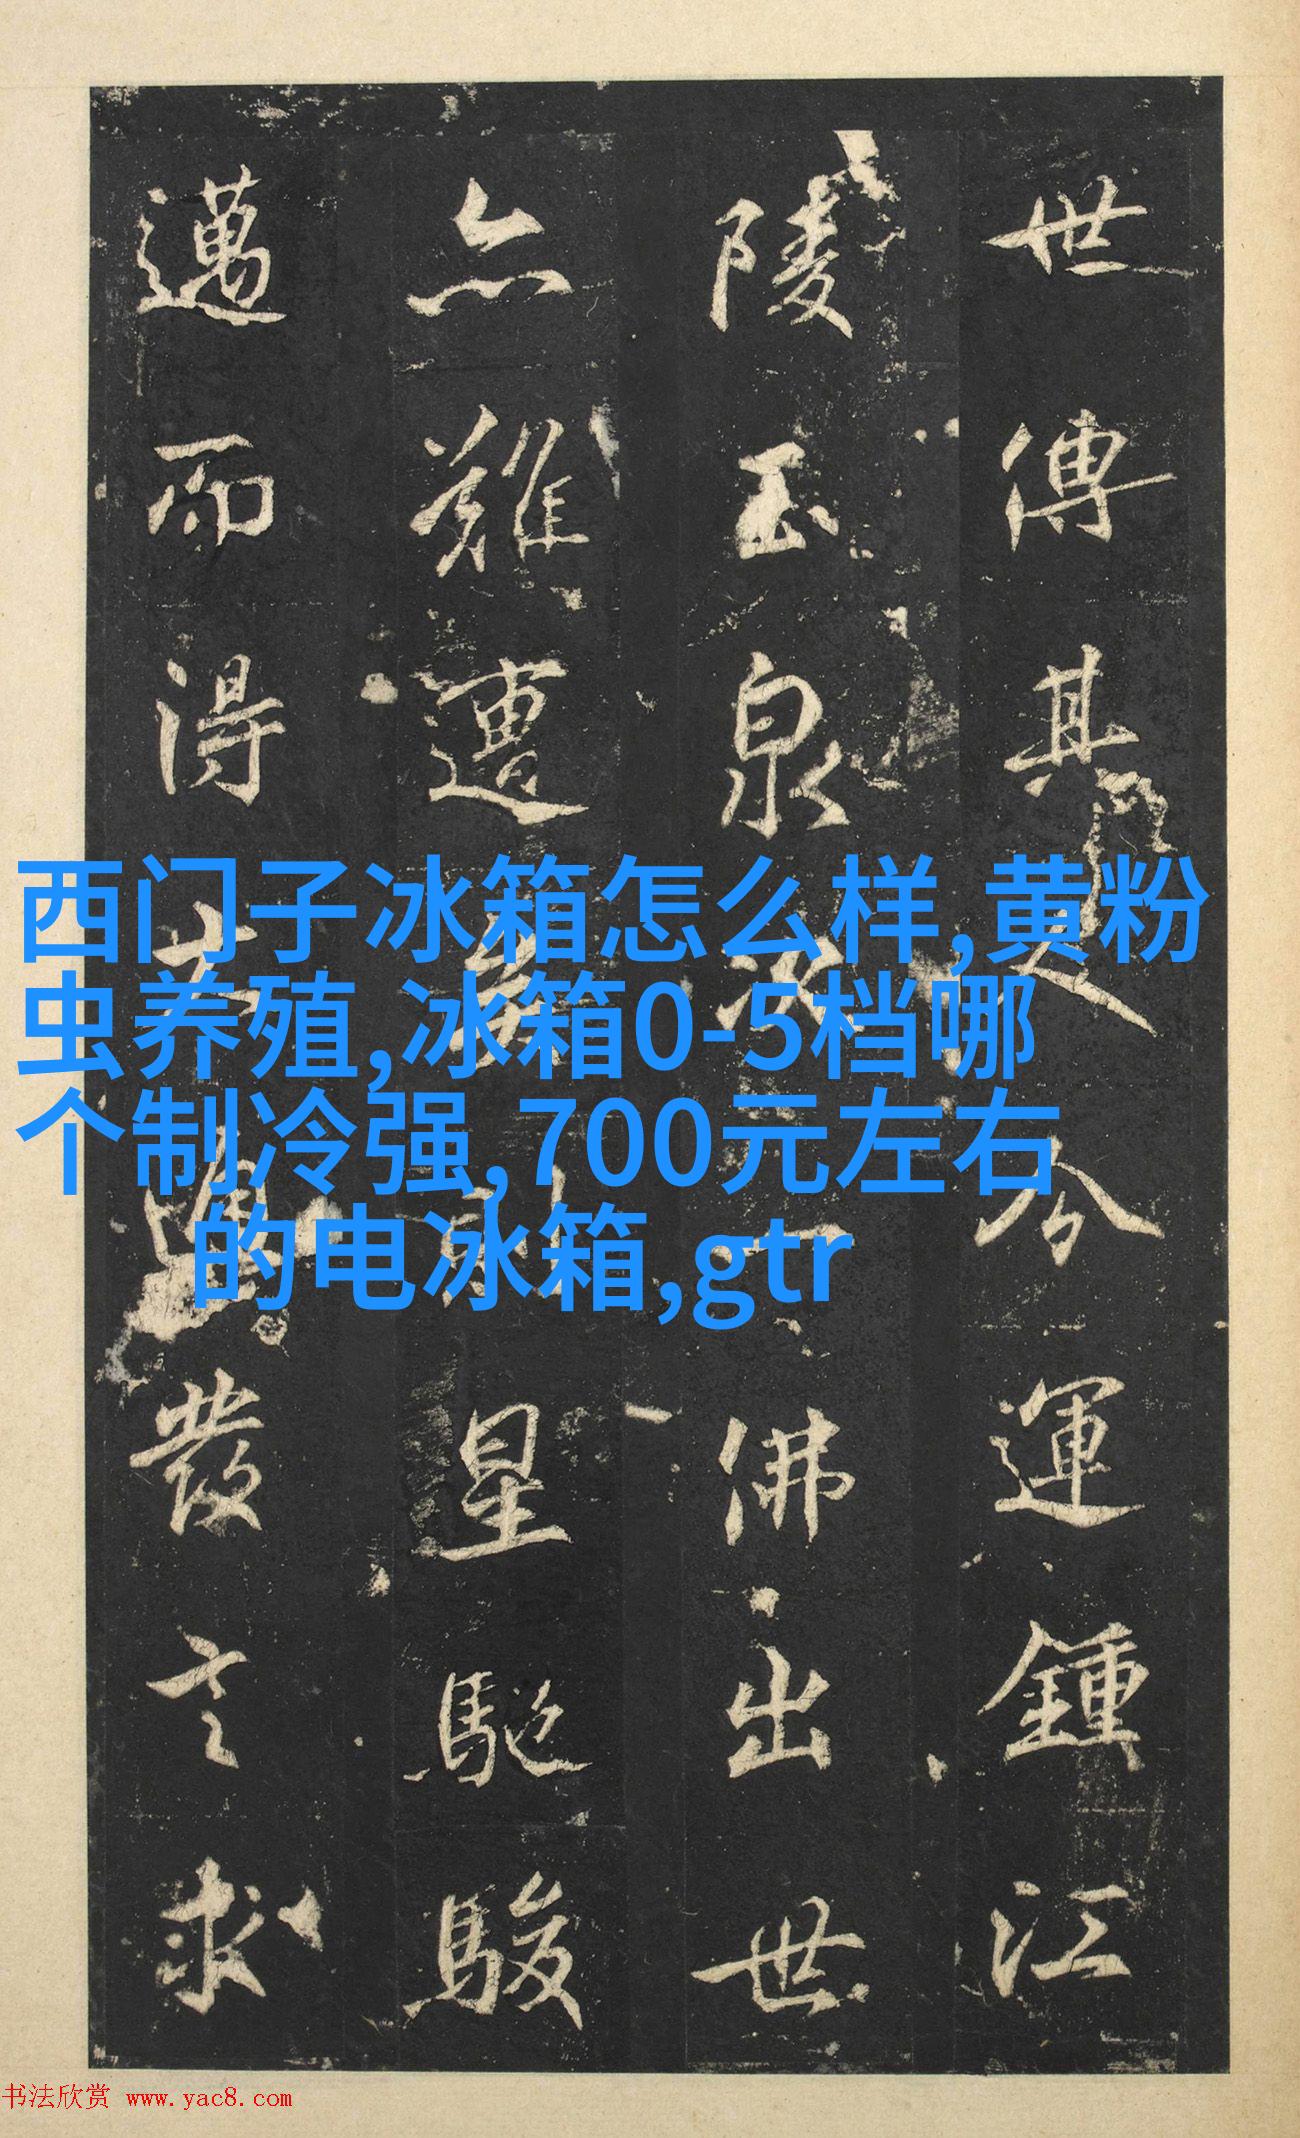 世傳其人今運鍾江
陵玉泉次一佛出世
亦難遭星馳駿
邁而得發言求
西门子冰箱怎么样,黄粉
虫养殖,冰箱0-5档哪
个制冷强,700元左右
的电冰箱,gtr
书法欣赏 www.yac8.com